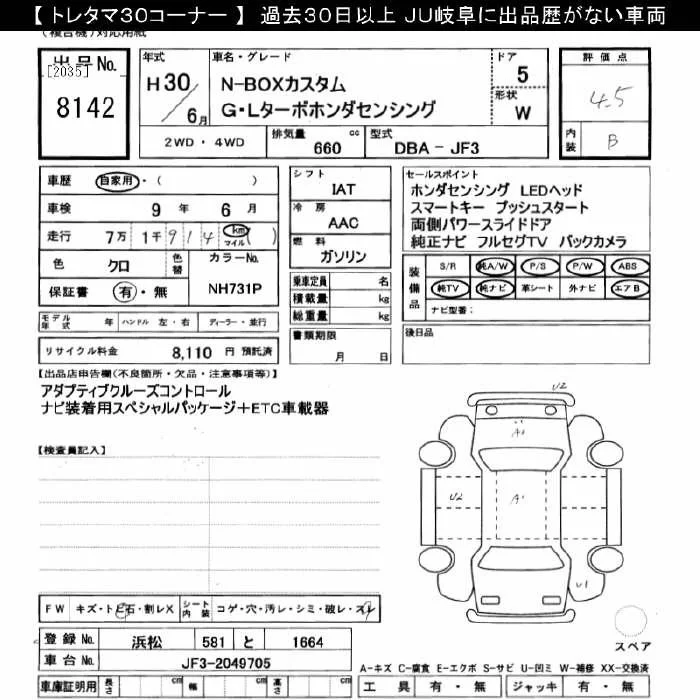 【 トレタマ30コーナー 】 過去30日以上 JU岐阜に出品歴がない車両
(複合機)対応用紙
出品No.
[2035]
8142
年式
H30
6月
車名・グレード
N-BOXカスタム
G・Lターボホンダセンシング
ドア
5
形状
W
2WD ・ 4WD
排気量
660 cc
型式
DBA - JF3
評価点
4.5
内装
B
車歴 自家用・( )
車検 9 年 6 月
走行 7万 1千 914 km マイル ( )
色 クロ
色替
カラーNo.
NH731P
保証書 有・無
モデル年式 年 ハンドル 左・右 ディーラー・並行
リサイクル料金 8,110 円 預託済
シフト
IAT
冷房
AAC
燃料
ガソリン
乗車定員 名
積載量 kg
総重量 kg
書類期限
月 日
セールスポイント
ホンダセンシング LEDヘッド
スマートキー プッシュスタート
両側パワースライドドア
純正ナビ フルセグTV バックカメラ
装備品
S/R 純A/W P/S P/W ABS
純TV 純ナビ 革シート 外ナビ エアB
ナビ型番:
後日品
【出品店申告欄(不良箇所・欠品・注意事項等)】
アダプティブクルーズコントロール
ナビ装着用スペシャルパッケージ+ETC車載器
【検査員記入】
U2
A1
U2
A1
U1
FW キズ・トビ石・割レX
シート内装 コゲ・穴・汚レ・シミ・破レ・スレ
登録No. 浜松 581 と 1664
車台No. JF3-2049705
スペア
A-キズ C-腐食 E-エクボ S-サビ U-凹ミ W-補修 XX-交換済
車庫証明用 長さ cm 幅 cm 高さ cm
工具 有・無 ジャッキ 有・無